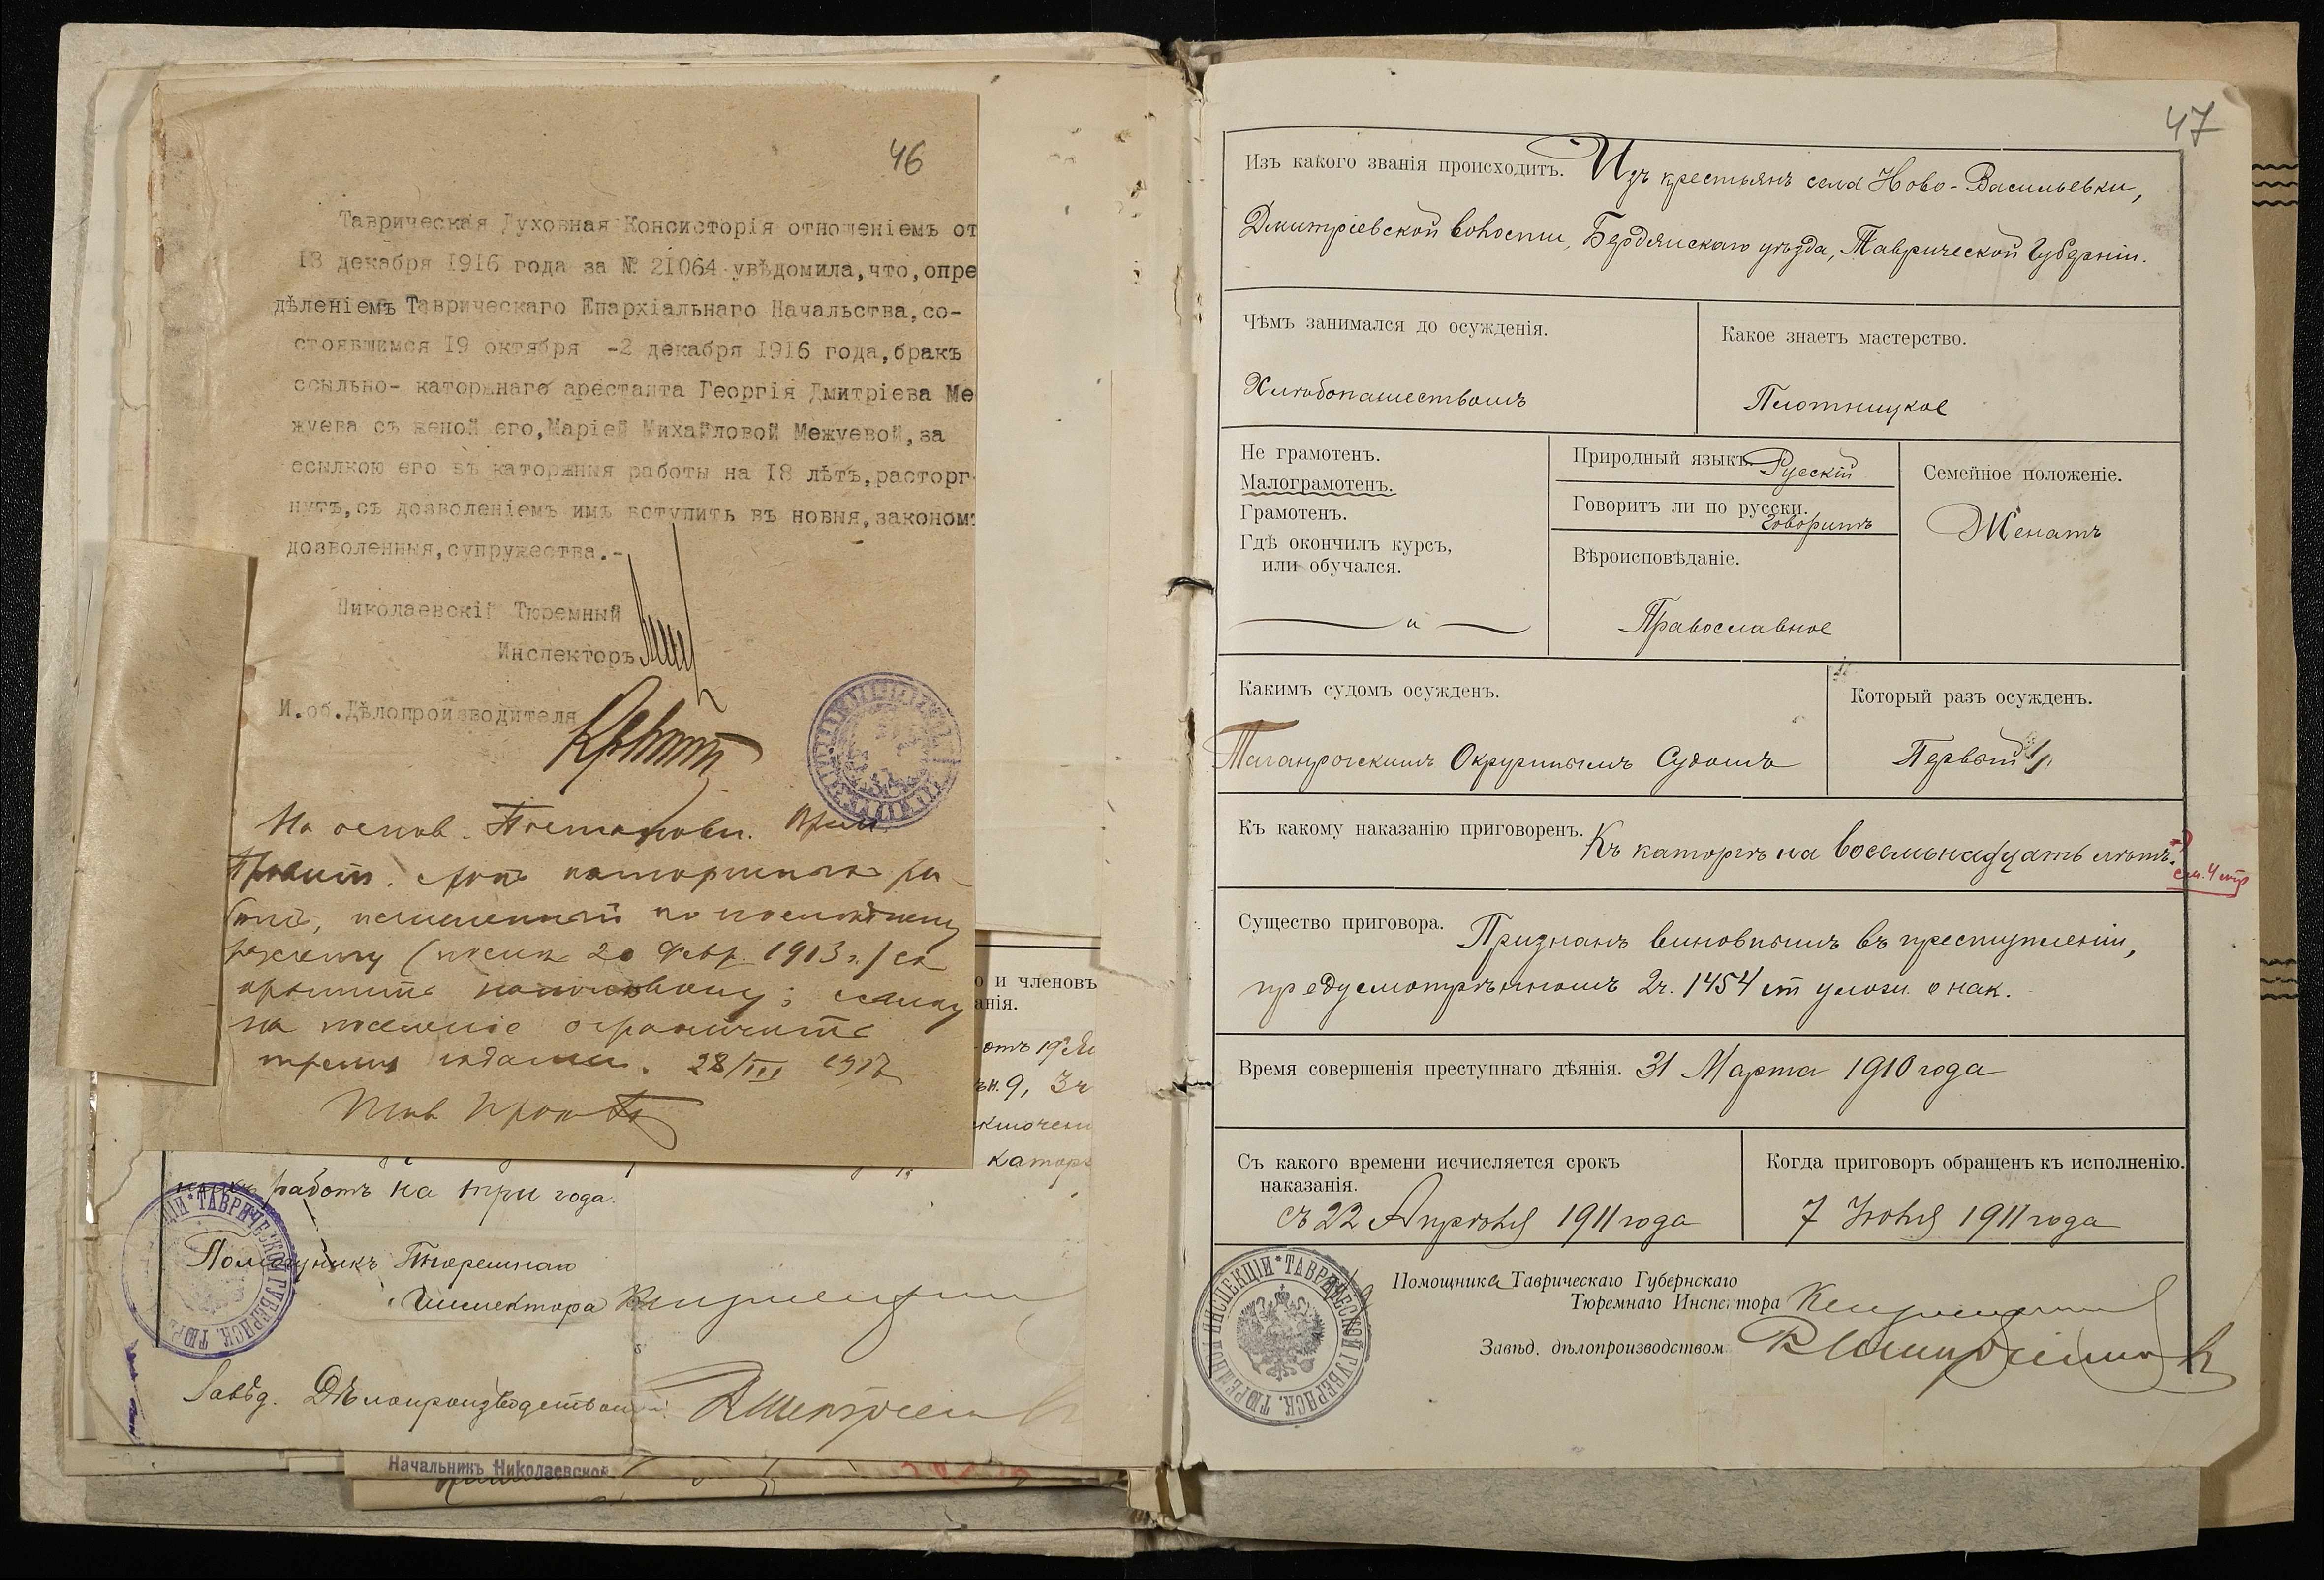 46
Таврическая Духовная Консисторія отношеніемъ от
18 декабря 1916 года за № 21064 увѣдомила,что,опре
дѣленіемъ Таврическаго Епархіальнаго Начальства,со-
стоявшимся 19 октября -2 декабря 1916 года,бракъ
ссыльно- каторжнаго арестанта Георгія Дмитріева Ме
жуева съ женой его,Маріей Михайловой Межуевой,за
ссылкою его въ каторжныя работы на 18 лѣтъ,расторг
нутъ,съ дозволеніемъ имъ вступить въ новыя,закономъ
дозволенныя,супружества.-
Николаевскій Тюремный
Инспекторъ
И.об.Дѣлопроизводителя
На основ. Постановл.
срокъ каторжныхъ ра-
ботъ, исчисленный по
(послѣ 20 Февр. 1913 г.) со
кратить на половину; ссылку
на поселеніе ограничить
тремя годами. 28/III 1917
о и членовъ
анія.
отъ 19
ън. 9, 3 ч
ключен
каторж
работъ на три года.
Помощникъ Тюремнаго
Инспектора
Завѣд. Дѣлопроизводствомъ
Начальникъ Николаевской
47
Изъ какого званія происходитъ. Изъ крестьянъ села Ново-Васильевки,
Дмитріевской волости, Бердянскаго уѣзда, Таврической Губерніи.
Чѣмъ занимался до осужденія.
Хлѣбопашествомъ
Какое знаетъ мастерство.
Плотницкое
Не грамотенъ.
Малограмотенъ.
Грамотенъ.
Гдѣ окончилъ курсъ,
или обучался.
— „ —
Природный языкъ. Русскій
Говоритъ ли по русски.
Говоритъ
Вѣроисповѣданіе.
Православное
Семейное положеніе.
Женатъ
Какимъ судомъ осужденъ.
Таганрогскимъ Окружнымъ Судомъ
Который разъ осужденъ.
Первый
Къ какому наказанію приговоренъ. Къ каторгѣ на восемьнадцать лѣтъ.
см. 4 стр
Существо приговора. Признанъ виновнымъ въ преступленіи,
предусмотрѣнномъ 2 ч. 1454 ст улож. о нак.
Время совершенія преступнаго дѣянія. 31 Марта 1910 года
Съ какого времени исчисляется срокъ
наказанія.
съ 22 Апрѣля 1911 года
Когда приговоръ обращенъ къ исполненію.
7 Іюня 1911 года
Помощника Таврическаго Губернскаго
Тюремнаго Инспектора
Завѣд. дѣлопроизводствомъ
ТЮРЕМНОЙ ИНСПЕКЦІИ * ТАВРИЧЕСКОЙ ГУБЕРНСК.